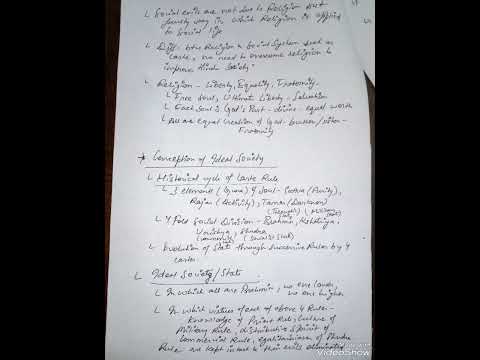 Social evils are not due to Religion but
faulty way in which Religion is applied
to Social life
Diff. btw Religion & Social System such as
Caste, no need to overcome religion to
improve Hindu Society
Religion - Liberty, Equality, Fraternity
Free Soul, Ultimate Liberty - Salvation
Each Soul is God's Part - divine - equal worth
All are equal creation of God - brother/sister -
Fraternity
* Conception of Ideal Society
Historical cycle of Caste Rule
3 elements (Guna) of Soul - Sattva (Purity),
Rajas (Activity), Tamas (Darkness)
4 Fold Social Division - Brahmin, Kshatriya,
Vaishya, Shudra
(Socialist State)
Evolution of State through successive Rules by 4
castes.
Ideal Society/State
In which all are Brahmin, no one lower,
no one higher
In which virtues of each of above 4 Rules -
Knowledge of Priest Rule, Culture of
Military Rule, distributive Spirit of
Commercial Rule, egalitarianism of Shudra
Rule are kept intact & their evils eliminated
VideoShow